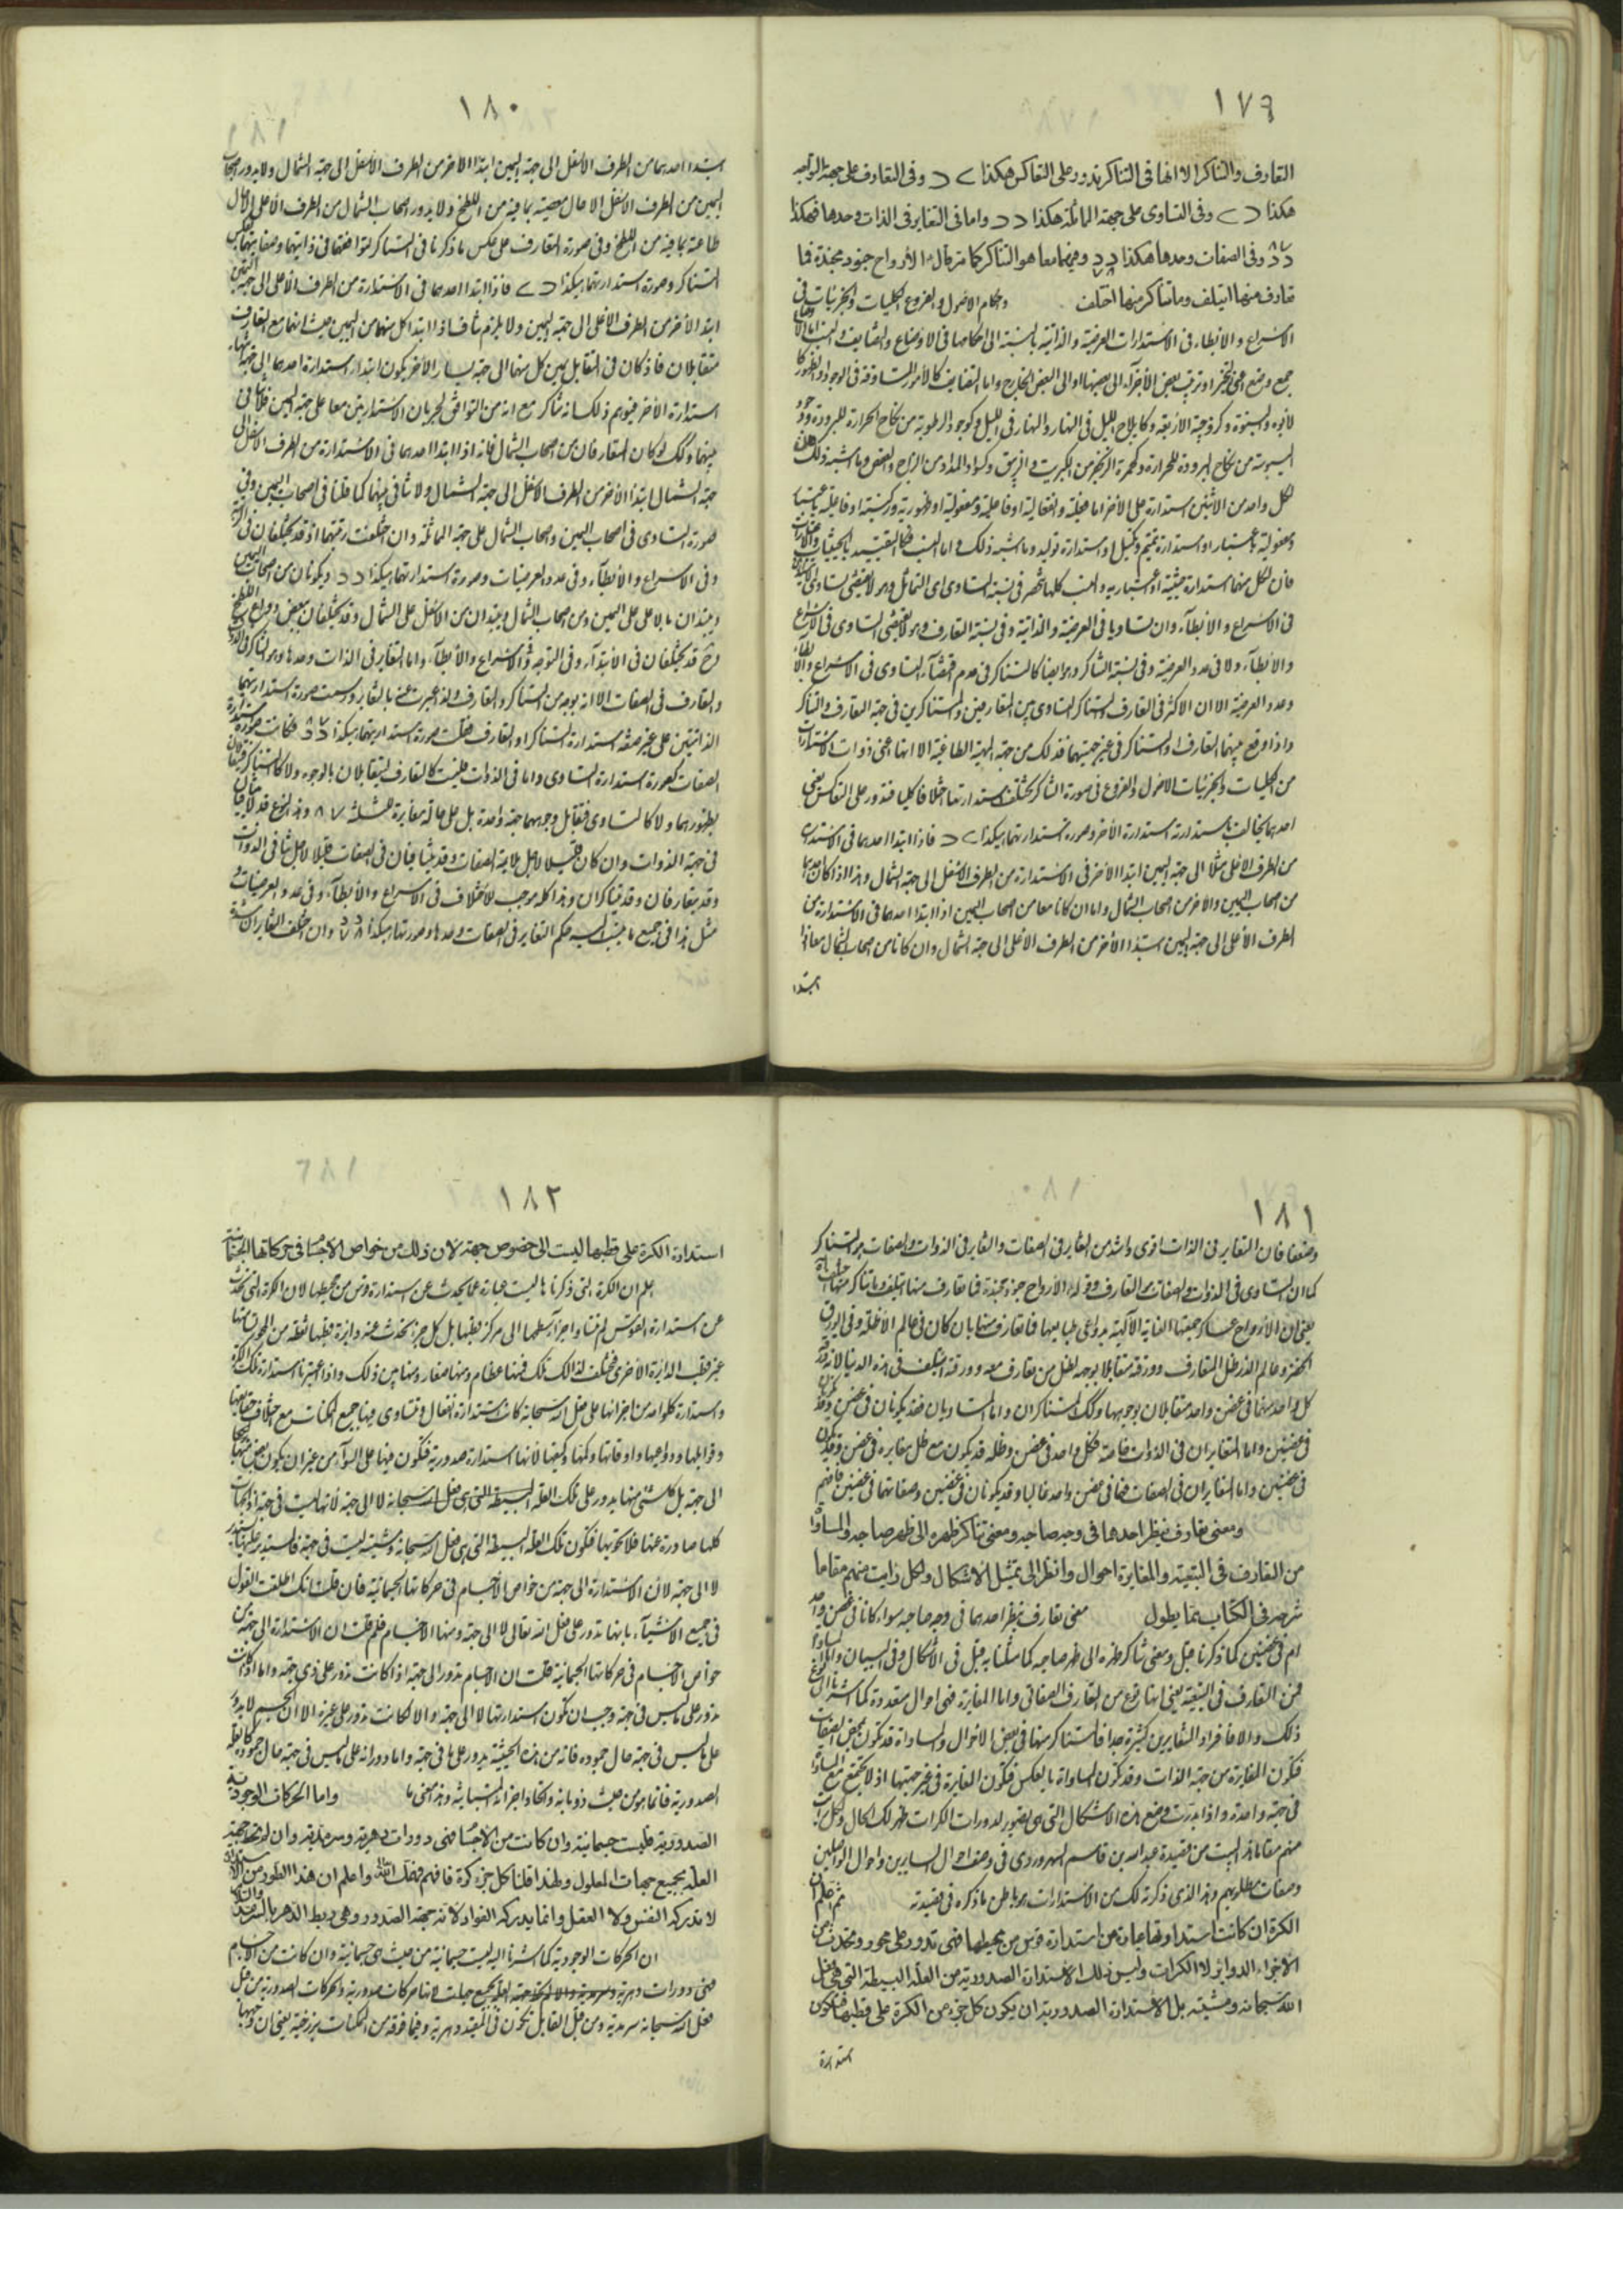 ١٧٩
التعارف والتناكر الا انها فى التناكر تدور على التعاكس هكذا > د وفى التعارف على جهة التواجه
هكذا د > وفى التساوى على جهة المماثلة هكذا د د واما فى التغاير فى الذات وحدها فهكذا
وفى الصفات وحدها هكذا وفيهما معا هو التناكر كما مر قال الأرواح جنود مجندة فما
تعارف منها ائتلف وما تناكر منها اختلف واحكام الاصول والفروع والكليات والجزئيات فى
الاسراع والابطاء فى الاستدارات العرضية والذاتية بالنسبة الى احكامها فى الاوضاع والتضايف والنسب
جمع وضع اعنى ترتب بعض الأجزاء الى بعضها او الى البعض الخارج واما التضايف كالامور المتساوقة فى الوجود والظهور
كالابوة والبنوة وكزوجية الاربعة وكايلاج الليل فى النهار والنهار فى الليل وكوجود الرطوبة من نكاح الحرارة للبرودة
اليبوسة من نكاح البرودة للحرارة وكحمرة الزنجفر من الكبريت والزيبق وكسواد المداد من الزاج والعفص وما اشبه ذلك
لكل واحد من الاثنين استدارة على الاخر اما فعلية وانفعالية او فاعلية ومفعولية او ظهورية
ومفعولية باعتبار او استدارة تتميم وتكميل او استدارة توليد وما اشبه ذلك واما النسب
فان لكل منهما استدارة حيثية او اعتبارية والنسب كلها تنحصر فى نسبة التساوى اى التماثل وهو لا يقتضى تساوى
فى الاسراع والابطآء وان تساويا فى العرضية والذاتية وفى نسبة التعارف وهو لا يقتضى التساوى فى الاسراع
والابطآء ولا فى عدد العرضية وفى نسبة التناكر وهو ايضا كالتناكر فى عدم اقتضآء التساوى فى الاسراع والابطاء
وعدد العرضية الا ان الاكثر فى التعارف والتناكر التساوى بين المتعارفين والمتناكرين فى جهة التعارف والتناكر
واذا وقع بينهما التعارف او التناكر فى غير جهتيهما فذلك من جهة الطاغية الا انها اعنى ذوات الاستدارات
من الكليات والجزئيات والاصول والفروع فى صورة التناكر تختلف استدارتها اختلافا كليا فتدور على التعاكس يعنى
احدهما يخالف باستدارته استدارة الآخر وصورة استدارتهما هكذا > د فاذا ابتدا احدهما فى الاستدارة
من الطرف الاعلى مثلا الى جهة اليمين ابتدا الآخر فى الاستدارة من الطرف الاسفل الى جهة الشمال وهذا اذا كان احدهما
من اصحاب اليمين والاخر من اصحاب الشمال واما ان كانا معا من اصحاب اليمين اذا ابتدا احدهما فى الاستدارة من
الطرف الأعلى الى جهة اليمين ابتدا الأخر من الطرف الاعلى الى جهة الشمال وان كانا من اصحاب الشمال معا فاذا
ابتدا
١٨٠
ابتدا احدهما من الطرف الاسفل الى جهة اليمين ابتدا الاخر من الطرف الاسفل الى جهة الشمال ولا يدور اصحاب
اليمين من الطرف الاسفل الا حال معصيته بما فيه من اللطخ ولا يدور اصحاب الشمال من الطرف الاعلى الا حال
طاعته بما فيه من اللطخ وفى صورة التعارف على عكس ما ذكرنا فى التناكر لتوافقهما فى ذاتيتهما وصفاتهما
التناكر وصورة استدارتهما هكذا د > فاذا ابتدا احدهما فى الاستدارة من الطرف الاعلى الى جهة اليمين
ابتدا الآخر من الطرف الاعلى الى جهة اليمين ولا يلزم تناف اذا ابتدا كل منهما من اليمين حيث انهما مع التعارف
متقابلان فاذ كان فى التقابل يمين كل منهما الى جهة يسار الآخر يكون ابتدا استدارة احدهما الى جهة
استدارة الأخر فيتوهم ذلك انه تناكر مع انه من التوافق لجريان الاستدارتين معا على جهة اليمين
بينهما وكذلك لو كان المتعارفان من اصحاب الشمال فانه اذا ابتدا احدهما فى الاستدارة من الطرف الاسفل الى
جهة الشمال ابتدا الآخر من الطرف الاسفل الى جهة الشمال ولا تنافى بينهما كما قلنا فى اصحاب اليمين وفى
صورة التساوى فى اصحاب اليمين واصحاب الشمال على جهة المماثلة وان اختلفت رتبتهما اذ قد يختلفان فى
وفى الاسراع والابطآء وفى عدد العرضيات وصورة استدارتهما هكذا د د ويكونان من اصحاب اليمين
ويبتدان بالاعلى على اليمين ومن اصحاب الشمال ويبتدان من الاسفل على الشمال وقد يختلفان
وقد يختلفان فى الابتدآء وفى التوجه والاسراع والابطآء واما التغاير فى الذات وحدها وهو التناكر
والتعارف فى الصفات الا انه بوجه من التناكر والتعارف ولذا عبرت عنه بالتغاير ورسمت صورة استدارتهما
الذاتيتين على غير صفة استدارة التناكر او التعارف فقلت صورة استدارتهما هكذا فكانت صورة
الصفات كصورة استدارة التساوى واما فى الذوات فليست كالتعارف ليتقابلان بالوجوه ولا كالتناكر
بظهورهما ولا كالتساوى فيقابل وجههما جهة واحدة بل على حالة مغايرة للثلثة ٧ ٨ وهذا النوع قد
فى جهة الذوات وان كان قليلا لاجل ملايمة الصفات وقد يتنافيان فى الصفات قليلا لاجل تنافى الذوات
وقد يتعارفان وقد يتناكران وهذا كله موجب للاختلاف فى الاسراع والابطآء وفى عدد العرضيات
مثل هذا فى جميع ما ينسب اليه حكم التغاير فى الصفات وحدها وصورتها هكذا وان اختلف التغايران
١٨١
وضعفا فان التغاير فى الذات اقوى واشد من التغاير فى الصفات والتغاير فى الذوات والصفات هو التناكر
كما ان التساوى فى الذوات والصفات هو التعارف وقوله الأرواح جنود مجندة فما تعارف منها ائتلف وما تناكر منها اختلف
يعنى ان الأرواح عساكر جمعتها العناية الآلهية بدواعى طبايعها فما تعارف منها بان كان فى عالم الأظلة وفى الورق
الاخضر وعالم الذر ظل المتعارف وورقه متقابلا بوجهه لظل من تعارف معه وورقه ائتلف فى هذه الدنيا
كل واحد منهما فى غصن واحد متقابلان بوجهيهما وكذلك المتناكران واما المتساويان فقد يكونان فى غصن وقد
فى غصنين واما المتغايران فى الذوات خاصة فكل واحد فى غصن وظله قد يكون مع ظل مغايره فى غصن وقد يكون
فى غصنين واما المتغايران فى الصفات فهما فى غصن واحد غالبا وقد يكونان فى غصنين وصفاتهما فى غصنين فافهم
ومعنى تعارف ينظر احدها فى وجه صاحبه ومعنى تناكر ظهره الى ظهر صاحبه والمساواة
من التعارف فى التبعية والمغايرة احوال وانظر الى تمثيل الاشكال ولكل رايت منهم مقاما
شرحه فى الكتاب مما يطول معنى تعارف ينظر احدهما فى وجه صاحبه سواء كانا فى غصن واحد
ام فى غصنين كما ذكرنا قبل ومعنى تناكر ظهره الى ظهر صاحبه كما مثلنا به قبل فى الأشكال وفى البيان والمساواة
فمن التعارف فى التبعية يعنى انها نوع من التعارف الصفاتى واما المغايرة فهى احوال متعددة كما اشرنا الى
ذلك والا فافراد المتغايرين كثيرة جدا فالمتناكر منها فى بعض الاحوال والمساواة قد تكون بعض الصفات
فتكون المغايرة من جهة الذات وقد تكون المساواة بالعكس فتكون المغايرة فى غير جهتها اذ لا تجتمع مع المساواة
فى جهة واحدة واذا تدبرت وضع هذه الاشكال التى هى تصوير لدورات الكرات ظهر لك الحال ولكل رايت
منهم مقاما هذا البيت من قصيدة عبد الله بن قاسم السهروردى فى وصف احوال السايرين واحوال الواصلين
وصفات مطلوبهم وهذا الذى ذكرته لك من الاستدارات هو باطن ما ذكره فى قصيدته ثم اعلم ان
الكرة ان كانت استدارتها عبارة عن استدارة قوس من محيطها فهى تدور على محور وتحدث من
الاجزاء الدواير لا الكرات وليس ذلك الاستدارة الصدورية من العلة البسيطة التى هى فعل
الله سبحانه ومشيته بل الاستدارة الصدورية ان يكون كل جزء من الكرة على قطبها فتكون
استدارة
١٨٢
استدارة الكرة على قطبها ليست الى خصوص جهة لان ذلك من خواص الاجسام فى حركاتها الجسمانية
اعلم ان الكرة التى ذكرناها ليست عبارة عما يحدث عن استدارة قوس من محيطها لان الكرة التى تحدث
عن استدارة القوس لم تتساو اجزآء سطحها الى مركز قطبها بل كل جزء يحدث عنه دايرة قطبها نقطة من المحور
غير قطب الدايرة الأخرى فتختلف لذلك تلك فمنها عظام ومنها صغار ومنها بين ذلك واذا اعتبرنا استدارة تلك الكرة
واستدارة كل واحد من اجزائها على فعل الله سبحانه كانت استدارة انفعال وتتساوى فيها جميع الممكنات مع اختلاف حقايقها
وقوابلها ودواعيها واوقاتها وكمها وكيفها لأنها استدارة صدورية فتكون فيها على السوآء من غير ان يكون
الى جهة بل كل شئ منها يدور على تلك العلة البسيطة التى هى فعل الله سبحانه لا الى جهة لأنها ليست فى جهة اذ الجهات
كلها صادرة عنها فلا تحويها فتكون تلك العلة البسيطة التى هى فعل الله سبحانه ومشيته ليست فى جهة فالمستدير عليها
لا الى جهة لأن الاستدارة الى جهة من خواص الأجسام فى حركاتها الجسمانية فان قلت انك اطلقت القول
فى جميع الاشيآء بانها تدور على فعل الله تعالى لا الى جهة ومنها الاجسام فلم قلت ان الاستدارة الى جهة من
خواص الاجسام فى حركاتها الجسمانية قلت ان الاجسام تدور الى جهة اذا كانت تدور على ذى جهة واما اذا كانت
تدور على ما ليس فى جهة وجب ان تكون استدارتها لا الى جهة والا لكانت تدور على غيره الا ان الجسم لا يدور
على ما ليس فى جهة حال جموده فانه من هذه الحيثية يدور على ما فى جهة واما دورانه على ما ليس فى جهة حال
الصدورية فانما هو من حيث ذوبانه واتحاد اجزائه واما الحركات الوجودية
الصدورية فليست جسمانية وان كانت من الاجسام فهى دورات دهرية وسرمدية وان
العلة بجميع جهات المعلول ولهذا قلنا كل جزء كرة فافهم فهمك الله واعلم ان هذا الطور من
لا تدركه النفس ولا العقل وانما يدركه الفؤاد لانه جهة الصدور وهى ربط الدهر بالسرمد
ان الحركات الوجودية كما اشرنا اليه ليست جسمانية من حيث هى جسمانية وان كانت من الاجسام
فهى دورات دهرية وسرمدية لانها حركات صدورية والحركات الصدورية من قبل
فعل الله سبحانه سرمدية ومن قبل القابل تكون فى المقيد دهرية وفيما فوقه من الممكنات برزخية يعنى ان وجهها